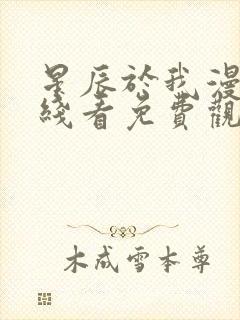 星辰於我漫
綫看免費觀
木成雪本尊